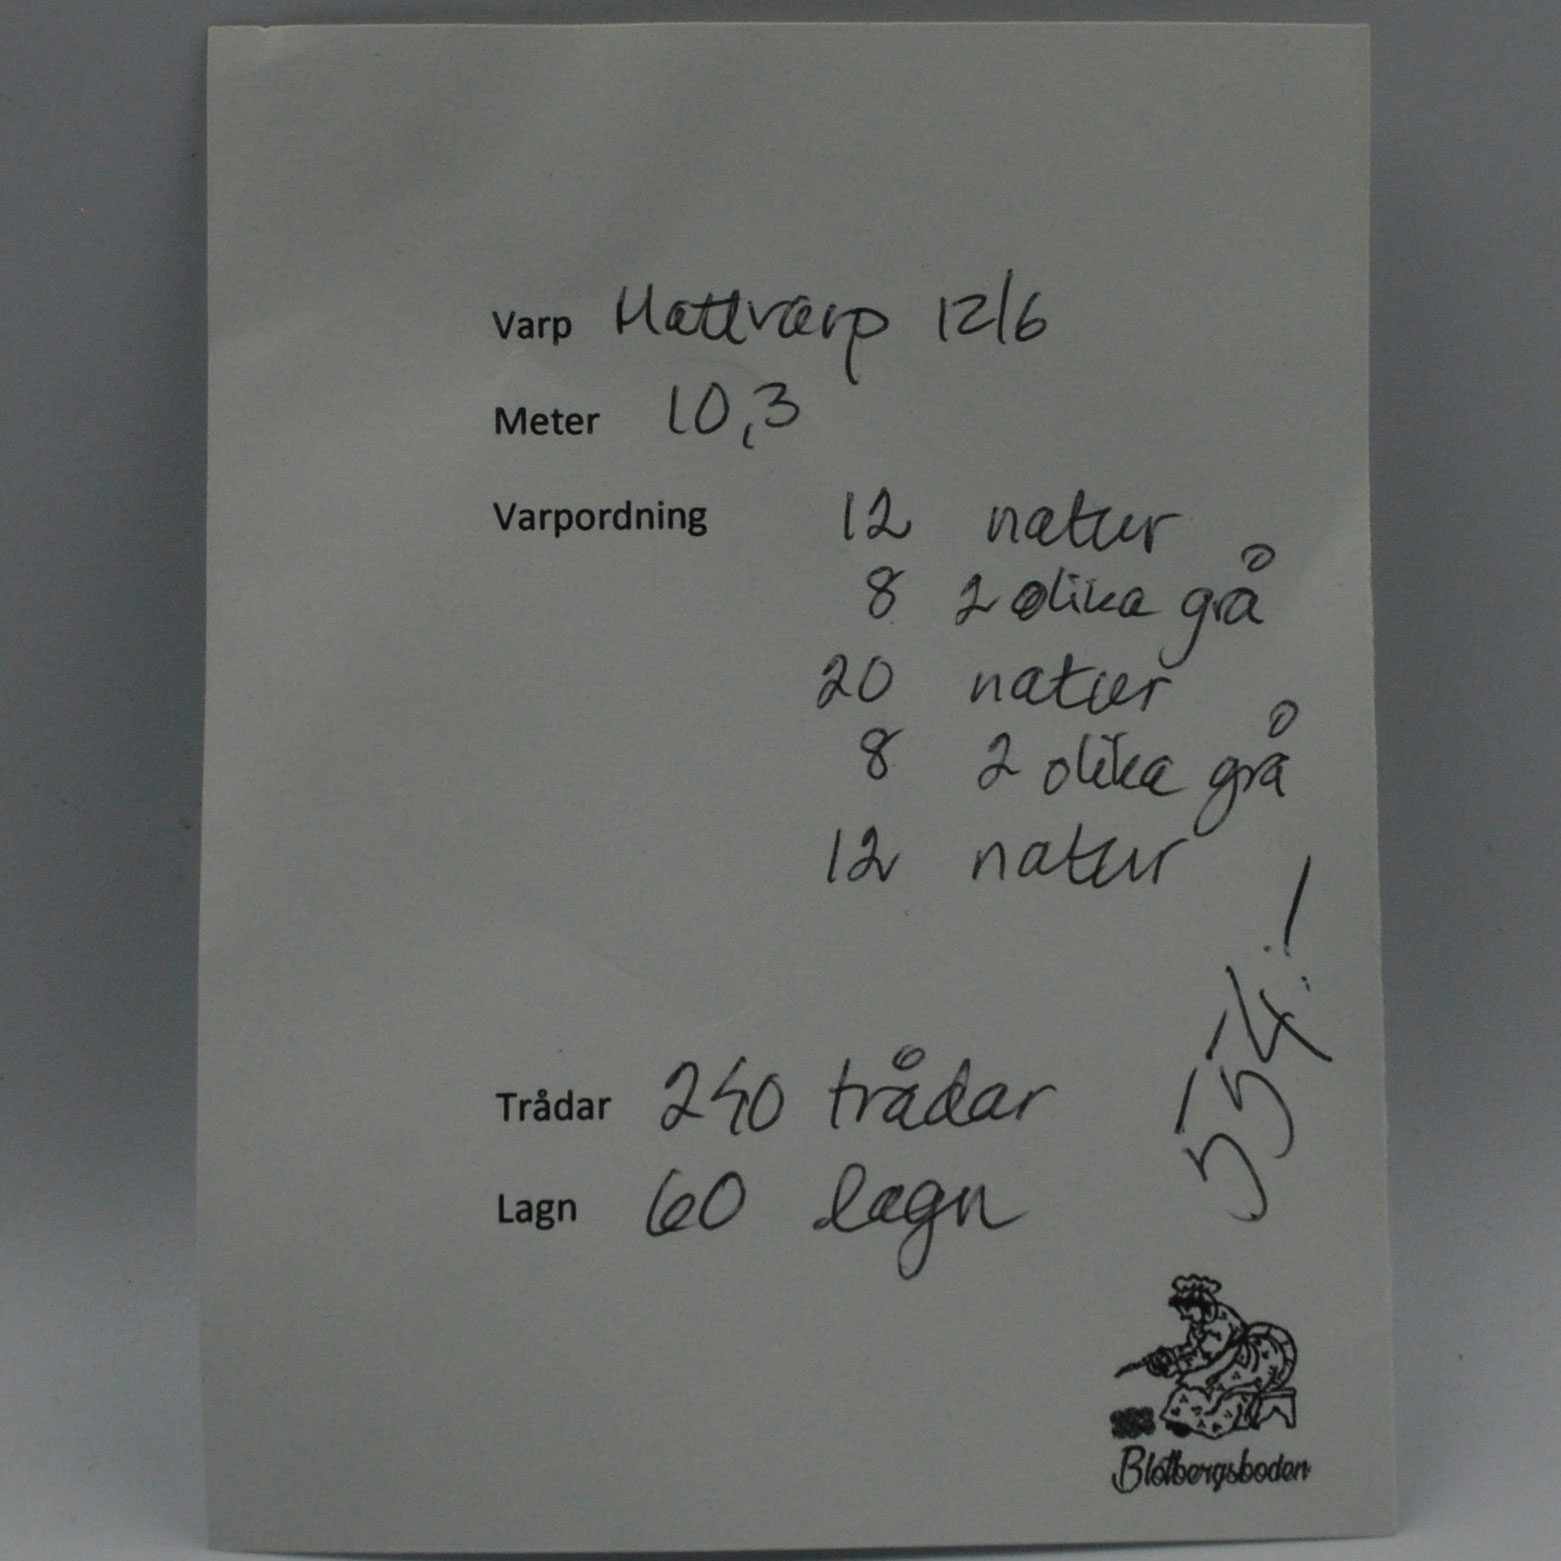 Varp Mattvarp 12/6
Meter 10,3
Varpordning 12 natur
8 2 olika grå
20 natur
8 2 olika grå
12 natur
554:!
Trådar 240 trådar
Lagn 60 lagn
Blotbergsboden